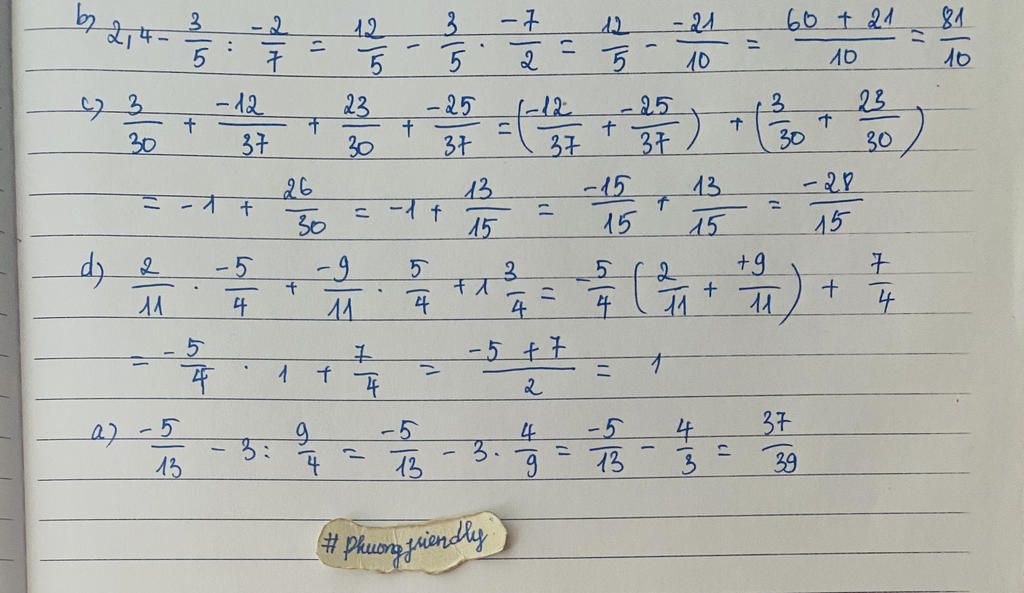 b) 2,4 - 3/5 : -2/7 = 12/5 - 3/5 . -7/2 = 12/5 - -21/10 = 60 + 21/10 = 81/10
c) 3/30 + -12/37 + 23/30 + -25/37 = (-12/37 + -25/37) + (3/30 + 23/30)
= -1 + 26/30 = -1 + 13/15 = -15/15 + 13/15 = -28/15
d) 2/11 . -5/4 + -9/11 . 5/4 + 1 3/4 = -5/4 (2/11 + +9/11) + 7/4
= -5/4 . 1 + 7/4 = -5 + 7/2 = 1
a) -5/13 - 3 : 9/4 = -5/13 - 3 . 4/9 = -5/13 - 4/3 = 37/39
#phuongfriendly